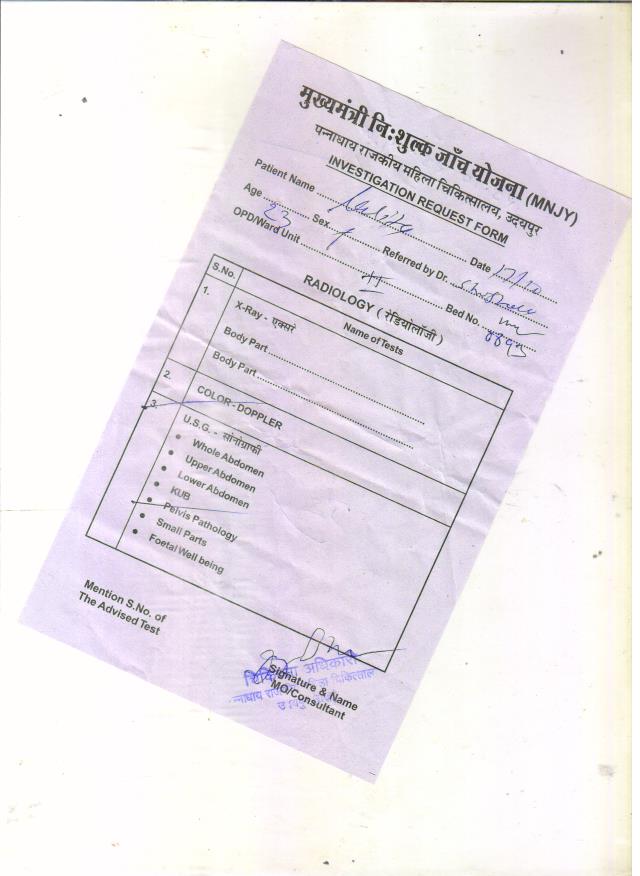 मुख्यमंत्री नि:शुल्क जाँच योजना (MNJY)
पन्नाधाय राजकीय महिला चिकित्सालय, उदयपुर
INVESTIGATION REQUEST FORM
Patient Name ........ Date 17/10
Age 23 Sex f Referred by Dr.
OPD/Ward Unit ........ Bed No.
RADIOLOGY ( रेडियोलॉजी )
S.No. Name of Tests
1. X-Ray - एक्सरे
Body Part
Body Part
2. COLOR - DOPPLER
3. U.S.G. - सोनोग्राफी
• Whole Abdomen
• Upper Abdomen
• Lower Abdomen
• KUB
• Pelvis Pathology
• Small Parts
• Foetal Well being
Mention S.No. of
The Advised Test
चिकित्सा अधिकारी
Signature & Name
MO/Consultant